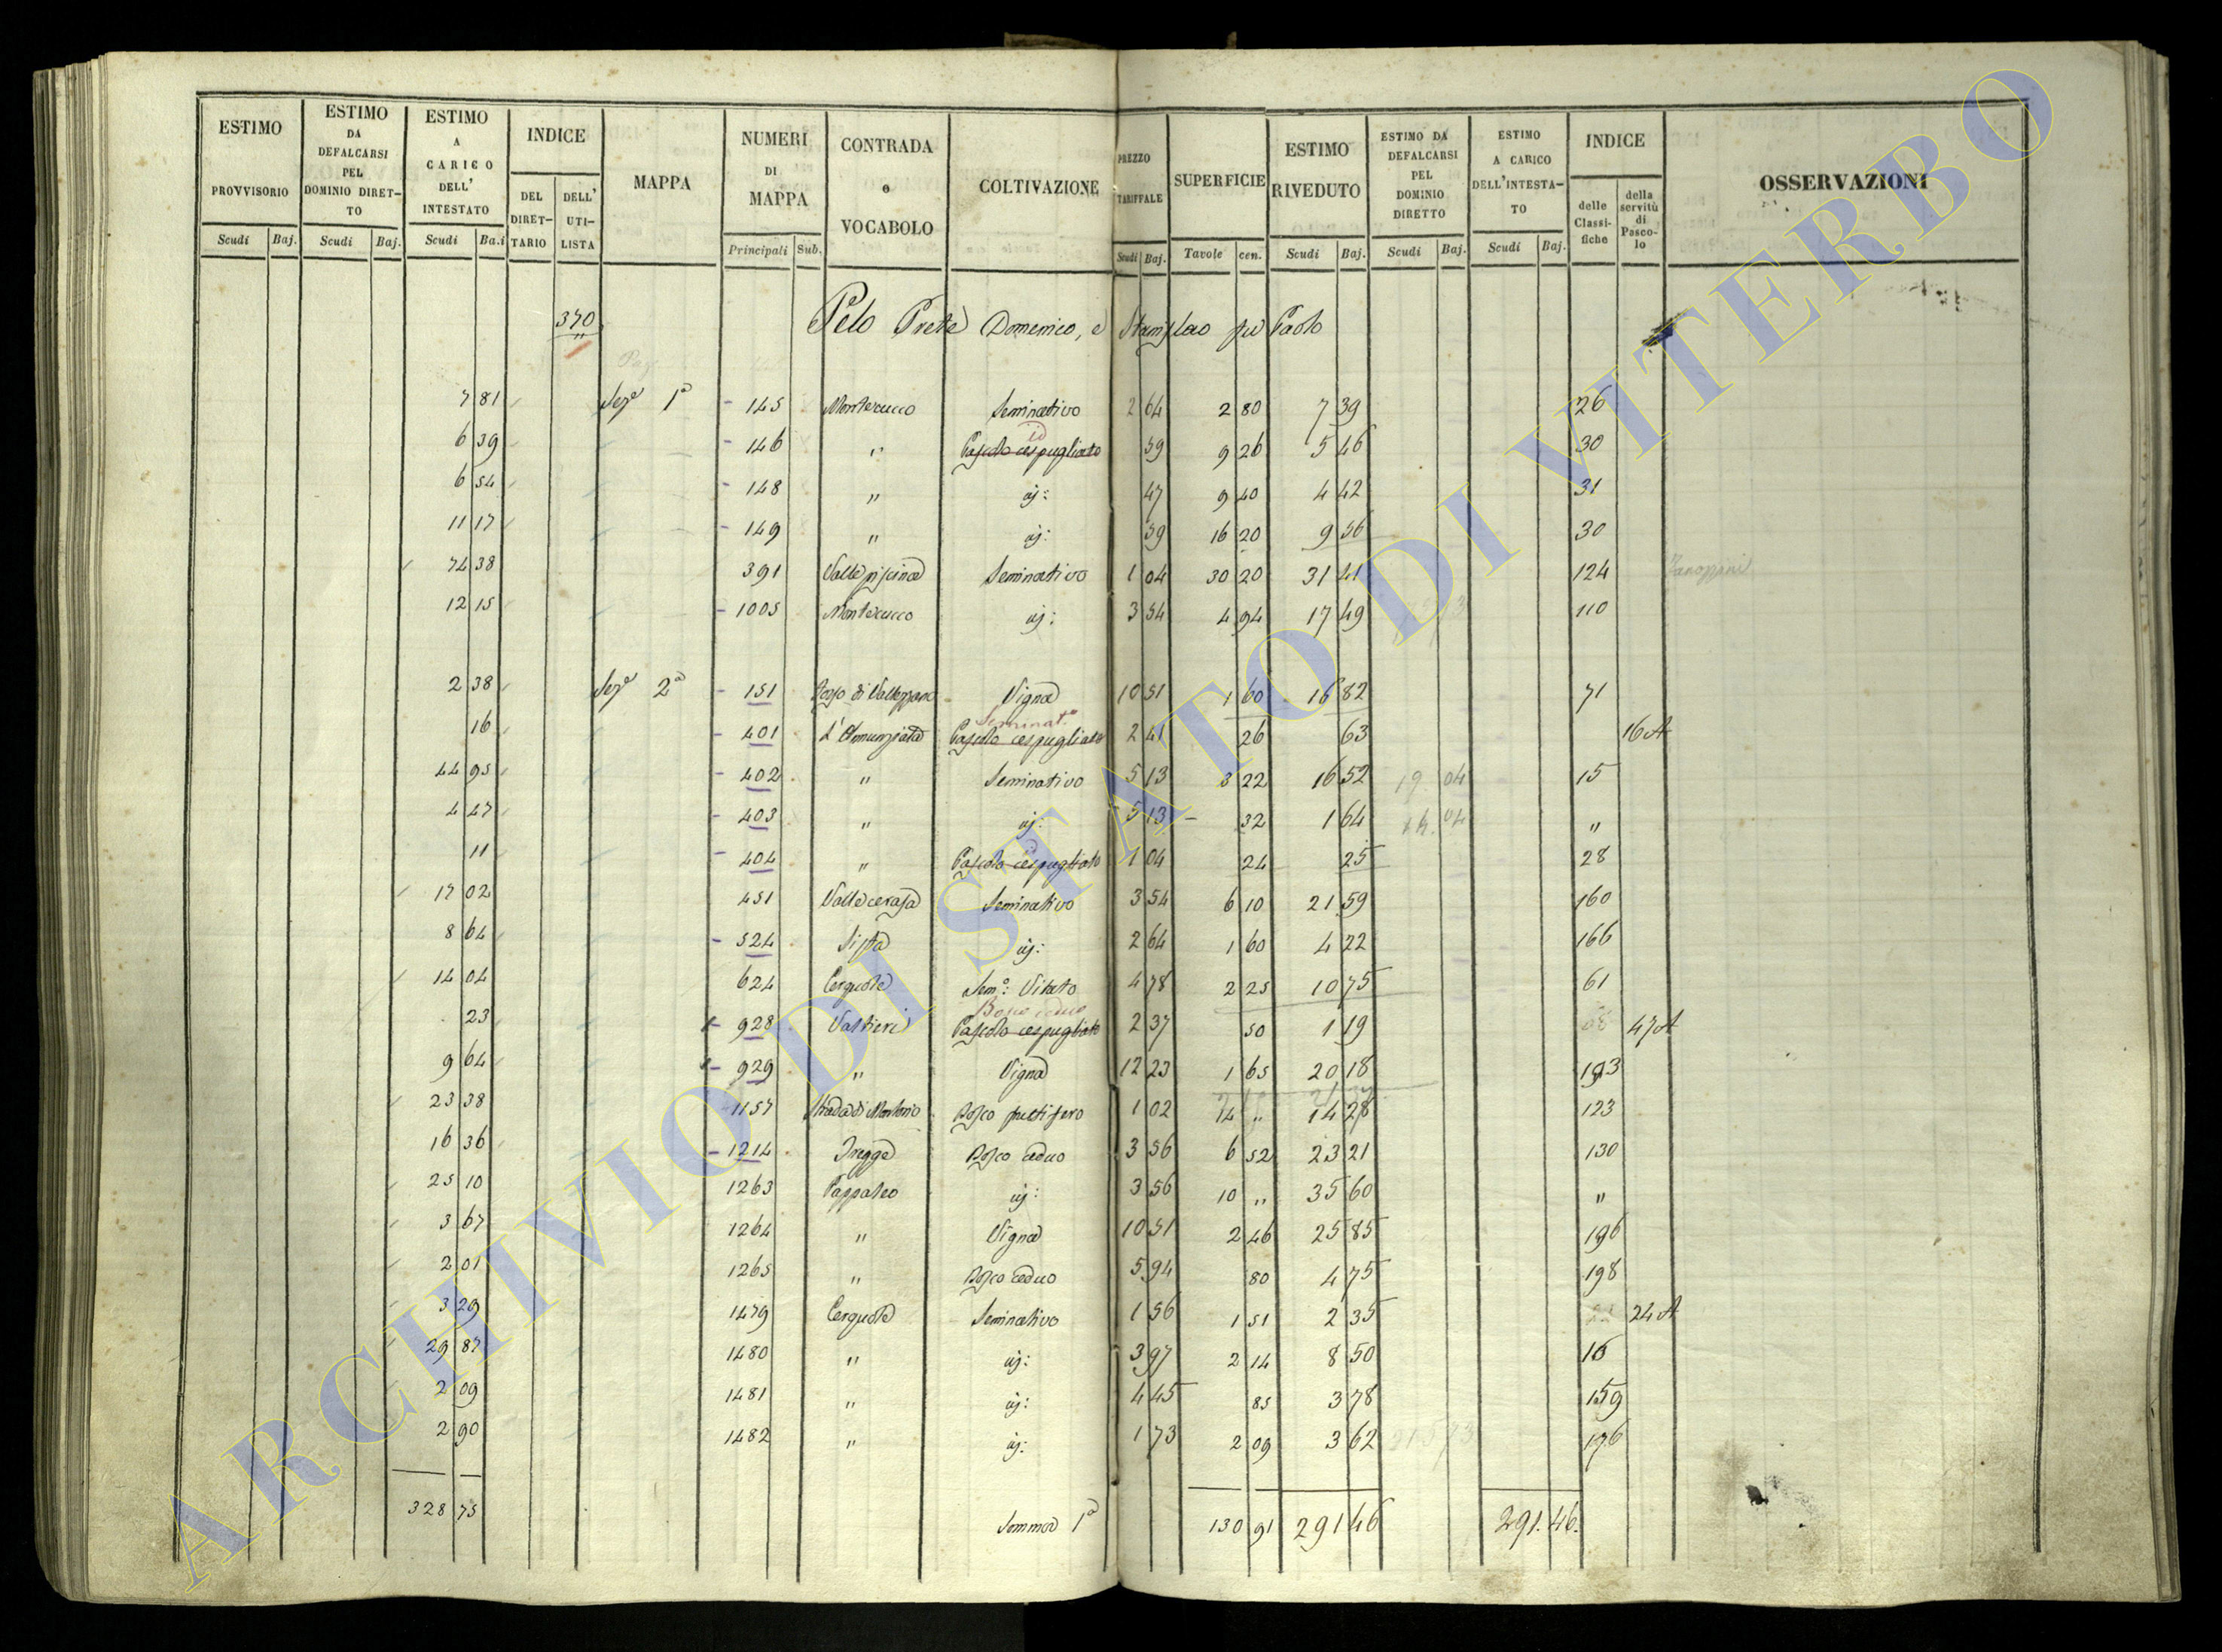 ESTIMO PROVVISORIO Scudi Baj.
ESTIMO DA DEFALCARSI PEL DOMINIO DIRET-TO Scudi Baj.
ESTIMO A CARICO DELL' INTESTATO Scudi Ba.i
INDICE DEL DIRET-TARIO DELL' UTI-LISTA
MAPPA
NUMERI DI MAPPA Principali Sub.
CONTRADA e VOCABOLO
COLTIVAZIONE
PREZZO TARIFFALE Scudi Baj.
SUPERFICIE Tavole cen.
ESTIMO RIVEDUTO Scudi Baj.
ESTIMO DA DEFALCARSI PEL DOMINIO DIRETTO Scudi Baj.
ESTIMO A CARICO DELL'INTESTA-TO Scudi Baj.
INDICE delle Classi-fiche della servitù di Pasco-lo
OSSERVAZIONI
370 Pelo Prete Domenico, e Stanislao fu Paolo
7 81 Sez.e 1a 145 Montecucco Seminativo 2 64 2 80 7 39 26
6 39 146 " Pascolo cespugliato id 59 9 26 5 46 30
6 54 148 " id: 47 9 40 4 42 31
11 17 149 " id: 59 16 20 9 56 30
74 38 391 Valle piscina Seminativo 1 04 30 20 31 41 124
12 15 1005 Montecucco id: 3 54 4 94 17 49 110
2 38 Sez.e 2a 151 Vigna 10 51 1 60 16 82 71
16 401 L'Annunziata Seminat.o Pascolo cespugliato 2 41 26 63 16 A
44 95 402 " Seminativo 5 13 3 22 16 52 19 04 15
4 47 403 " id: 5 13 32 1 64 "
11 404 " Pascolo cespugliato 1 04 24 25 28
17 02 451 Valle cerasa Seminativo 3 54 6 10 21 59 160
8 64 524 id: 2 64 1 60 4 22 166
14 04 624 Cerquola Sem.o Vitato 4 78 2 25 10 75 61
23 928 Valtieri Bosco ceduo Pascolo cespugliato 2 37 50 1 19 47 A
9 64 929 " Vigna 12 23 1 65 20 18 193
23 38 1157 Strada di Montorio Bosco fruttifero 1 02 14 " 14 28 123
16 36 1214 Bosco ceduo 3 56 6 52 23 21 130
25 10 1263 Pappaleo id: 3 56 10 " 35 60 "
3 67 1264 " Vigna 10 51 2 46 25 85 196
2 01 1265 " Bosco ceduo 5 94 80 4 75 198
3 29 1479 Cerquola Seminativo 1 56 1 51 2 35 24 A
29 87 1480 " id: 3 97 2 14 8 50 16
2 09 1481 " id: 4 45 85 3 78 159
2 90 1482 " id: 1 73 2 09 3 62 176
328 75 Somma 1a 130 91 291 46 291. 46.
ARCHIVIO DI STATO DI VITERBO